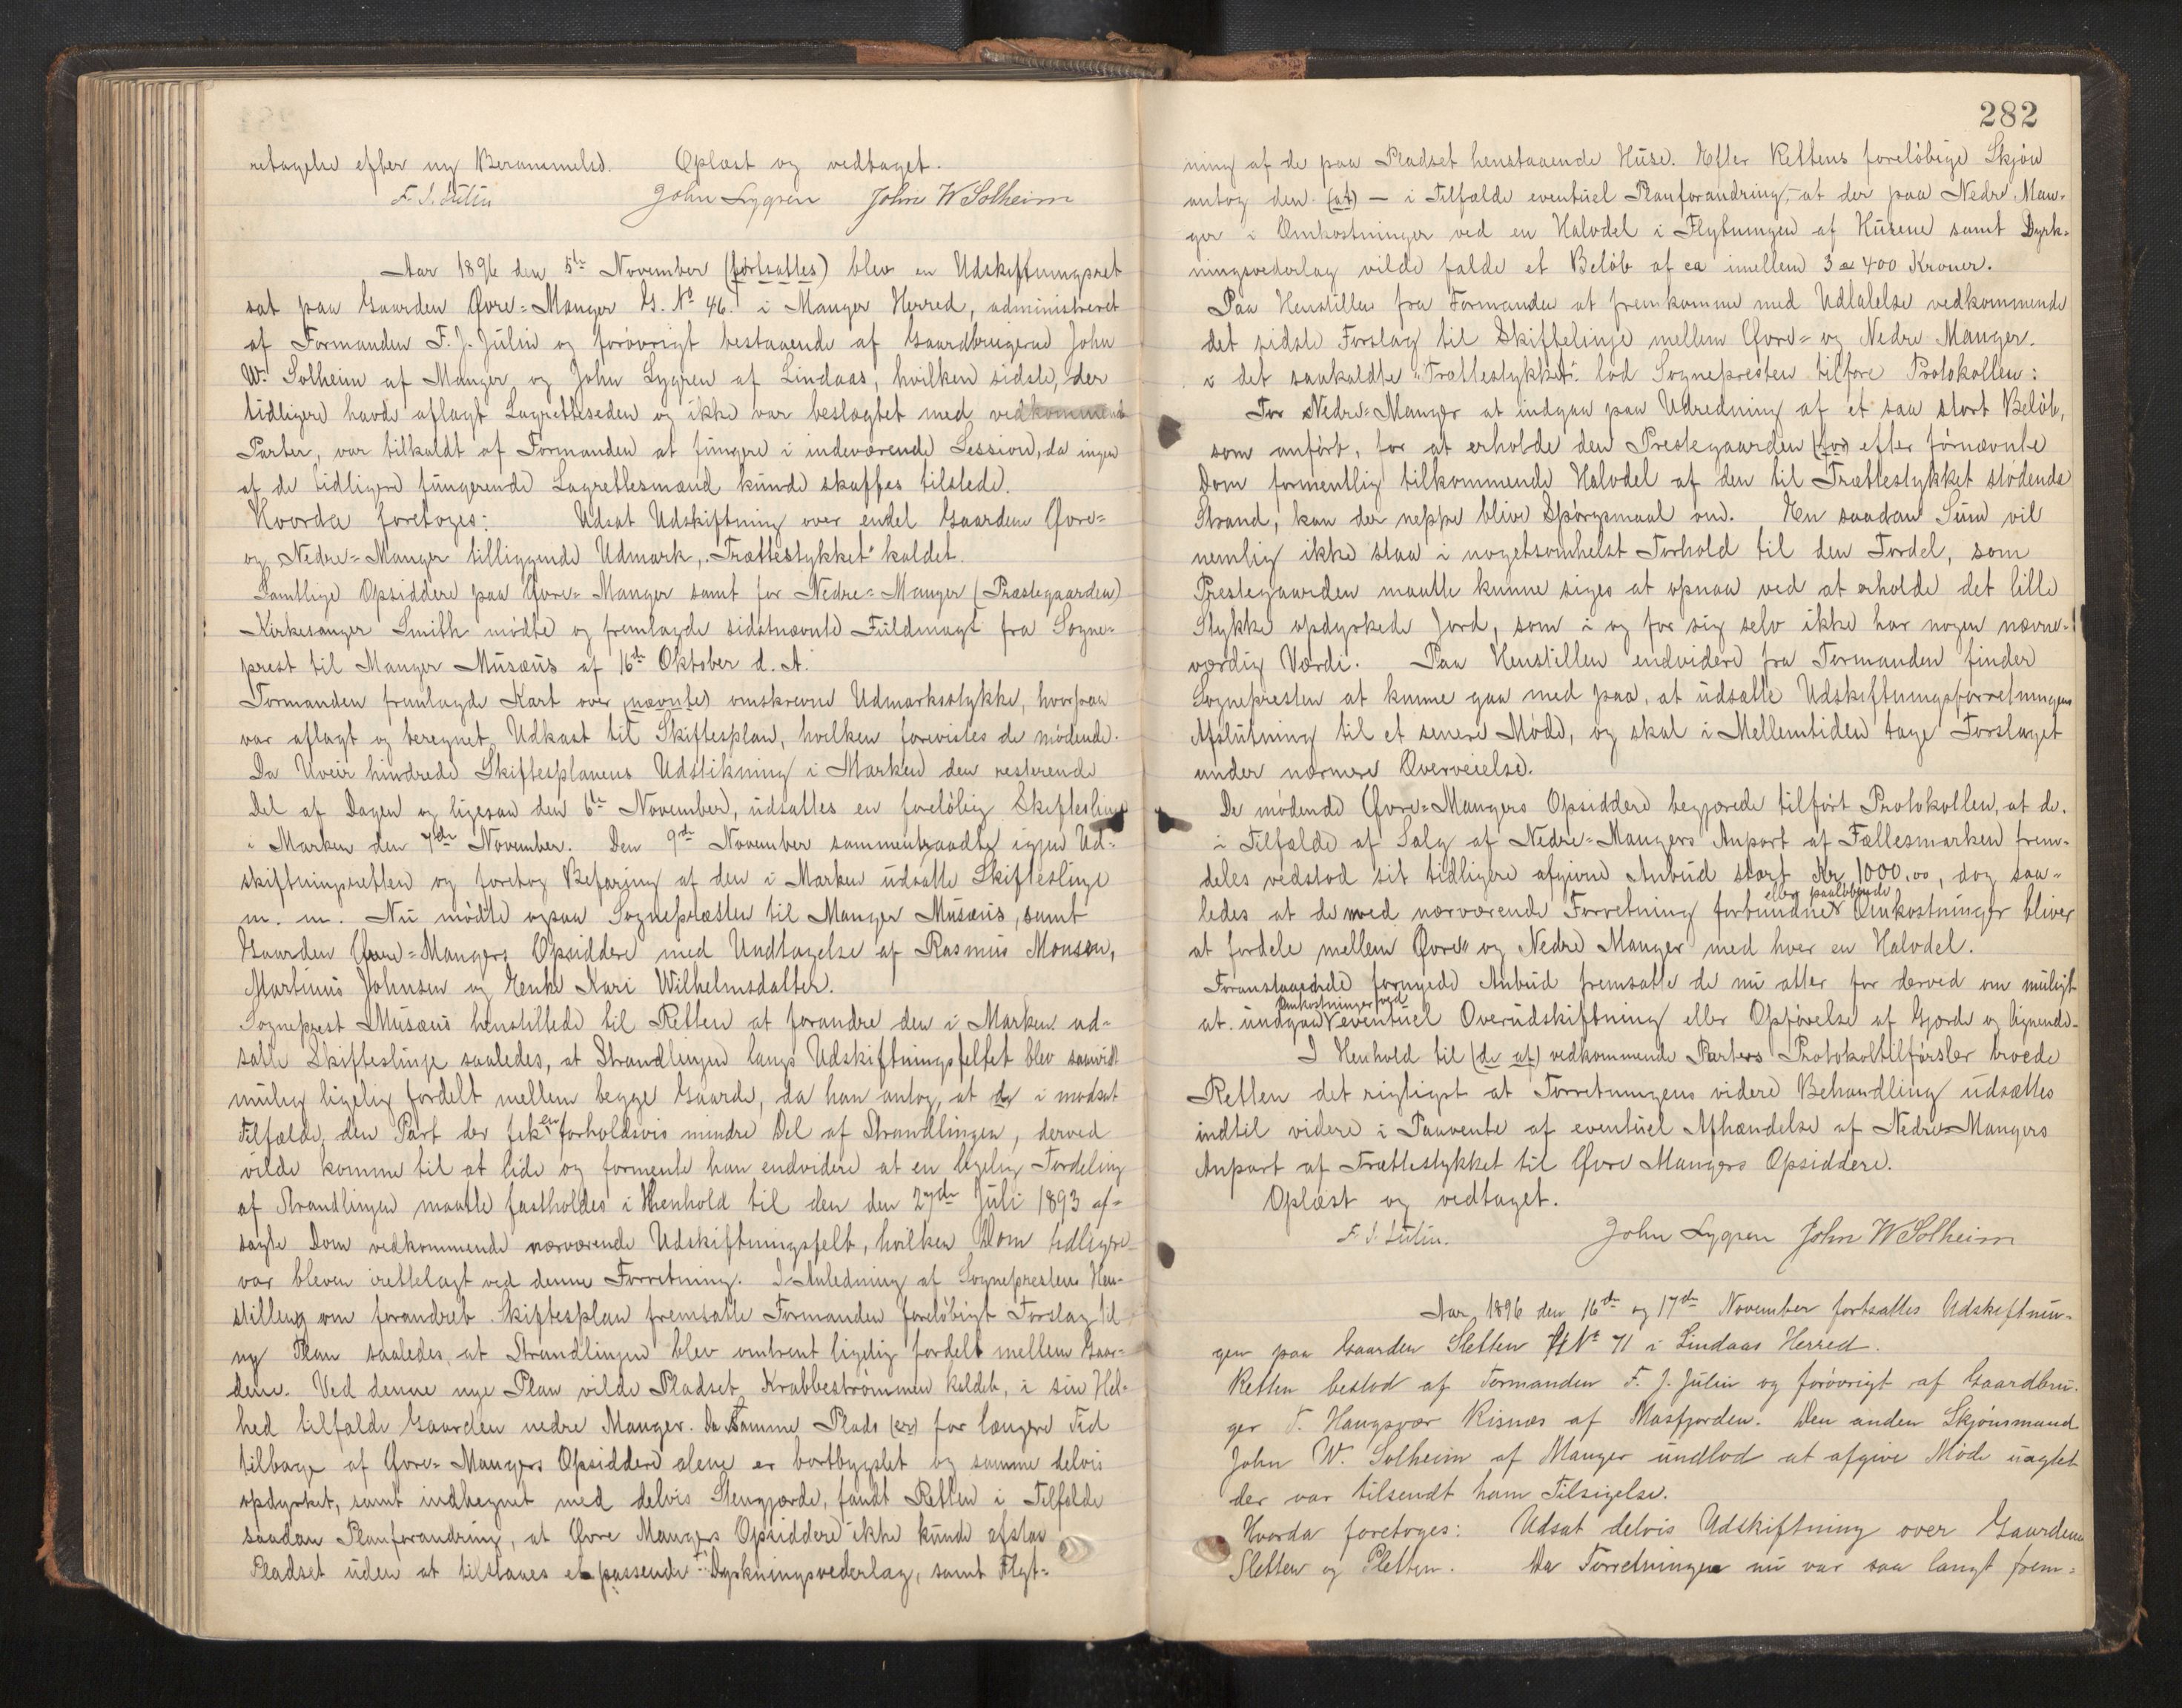 retagelse efter ny Berammelse. Oplæst og vedtaget.
F. J. Julin John Lygren John W Solheim
Aar 1896 den 5te November (fortsattes) blev en Udskiftningsret
sat paa Gaarden Øvre=Manger G. No 46. i Manger Herred, administreret
af Formanden F. J. Julin og forøvrigt bestaaende af Gaardbrugerne John
W. Solheim af Manger og John Lygren af Lindaas, hvilken sidste, der
tidligere havde aflagt Lagretteseden og ikke var beslægtet med vedkommende
Parter, var tilkaldt af Formanden at fungere i indeværende Session, da ingen
af de tidligere fungerende Lagrettesmænd kunde skaffes tilstede.
Hvorda foretoges: Udsat Udskiftning over endel Gaarden Øvre=
og Nedre=Manger tilliggende Udmark, "Trættestykket" kaldet.
Samtlige Opsiddere paa Øvre=Manger samt for Nedre=Manger (Præstegaarden)
Kirkesanger Smith mødte og fremlagde sidstnævnte Fuldmagt fra Sogne=
prest til Manger Musæus af 16de Oktober d. A.
Formanden fremlagde Kart over (nævnte) omskrevne Udmarksstykke, hvorpaa
var aflagt og beregnet Udkast til Skiftesplan, hvilken forevistes de mødende.
Da Uveir hindrede Skiftesplanens Udstikning i Marken den resterende
Del af Dagen og ligesaa den 6te November, udsattes en foreløbig Skifteslinje
i Marken den 7de November. Den 9de November sammentraadte igjen Ud=
skiftningsretten og foretog Befaring af den i Marken udsatte Skifteslinje
m. m. Nu mødte ogsaa Sognepræsten til Manger Musæus, samt
Gaarden Øvre=Mangers Opsiddere med Undtagelse af Rasmus Monsen,
Martinus Johnsen og Enke Kari Wilhelmsdatter.
Sogneprest Musæus henstillede til Retten at forandre den i Marken ud=
satte Skifteslinje saaledes, at Strandlinjen langs Udskiftningsfeltet blev saavidt
mulig ligelig fordelt mellem begge Gaarde, da han antog, at der i modsat
Tilfælde, den Part der fik en forholdsvis mindre Del af Strandlinjen, derved
vilde komme til at lide og formente han endvidere at en ligelig Fordeling
af Strandlinjen maatte fastholdes i Henhold til den den 27de Juli 1893 af=
sagte Dom vedkommende nærværende Udskiftningsfelt, hvilken Dom tidligere
var bleven irettelagt ved denne Forretning. I Anledning af Sogneprestens Hen=
stilling om forandret Skiftesplan fremsatte Formanden foreløbigt Forslag til
ny Plan saaledes, at Strandlinjen blev omtrent ligelig fordelt mellem Gaar=
dene. Ved denne nye Plan vilde Pladset Krabbestrømmen kaldet, i sin Hel=
hed tilfalde Gaarden nedre Manger. Da samme Plads (er) for længere Tid
tilbage af Øvre=Mangers Opsiddere alene er bortbygslet og samme delvis
opdyrket, samt indhegnet med delvis Stengjærde, fandt Retten i Tilfælde
saadan Planforandring, at Øvre Mangers Opsiddere ikke kunde afstaa
Pladset uden at tilstaaes et passende Dyrkningsvederlag, samt Flyt=
282
ning af de paa Pladset henstaaende Huse. Efter Rettens foreløbige Skjøn
antog den (at) — i Tilfælde eventuel Planforandring, — at der paa Nedre Man=
ger i Omkostninger ved en Halvdel i Flytningen af Husene samt Dyrk=
ningsvederlag vilde falde et Beløb af ca imellem 3 a 400 Kroner.
Paa Henstillen fra Formanden at fremkomme med Udtalelse vedkommende
det sidste Forslag til Skiftelinje mellem Øvre= og Nedre Manger.
i det saakaldte "Trættestykket" lod Sognepresten tilføre Protokollen:
For Nedre=Manger at indgaa paa Udredning af et saa stort Beløb,
som anført, for at erholde den Prestegaarden (for) efter førnævnte
Dom formentlig tilkommende Halvdel af den til Trættestykket stødende
Strand, kan der neppe blive Spørgsmaal om. En saadan Sum vil
nemlig ikke staa i nogetsomhelst Forhold til den Fordel, som
Prestegaarden maatte kunne siges at opnaa ved at erholde det lille
Stykke opdyrkede Jord, som i og for sig selv ikke har nogen nævne=
værdig Værdi. Paa Henstillen endvidere fra Formanden finder
Sognepresten at kunne gaa med paa, at udsætte Udskiftningsforretningens
Afslutning til et senere Møde, og skal i Mellemtiden tage Forslaget
under nærmere Overveielse.
De mødende Øvre=Mangers Opsiddere begjærede tilført Protokollen, at de
i Tilfælde af Salg af Nedre=Mangers Anpart af Fællesmarken frem=
deles vedstod sit tidligere afgivne Anbud stort Kr. 1000.00, dog saa=
eller paaløbende
ledes at de med nærværende Forretning forbundne Omkostninger bliver
at fordele mellem Øvre= og Nedre Manger med hver en Halvdel.
Foranstaaende fornyede Anbud fremsatte de nu atter for derved om muligt
Omkostninger ved
at undgaa eventuel Overudskiftning eller Opførelse af Gjærde og lignende.
I Henhold til (de af) vedkommende Parters Protokoltilførsler troede
Retten det rigtigst at Forretningens videre Behandling udsættes
indtil videre i Paavente af eventuel Afhændelse af Nedre=Mangers
Anpart af Trættestykket til Øvre Mangers Opsiddere.
Oplæst og vedtaget.
F. J. Julin. John Lygren John W Solheim
Aar 1896 den 16de og 17de November fortsattes Udskiftnin=
gen paa Gaarden Sletten G No 71 i Lindaas Herred.
Retten bestod af Formanden F. J. Julin og forøvrigt af Gaardbru=
ger T. Haugsvær Risnæs af Masfjorden. Den anden Skjønsmand
John W. Solheim af Manger undlod at afgive Møde uagtet
der var tilsendt ham Tilsigelse.
Hvorda foretoges: Udsat delvis Udskiftning over Gaardene
Sletten og Pletten. Da Forretningen nu var saa langt frem=